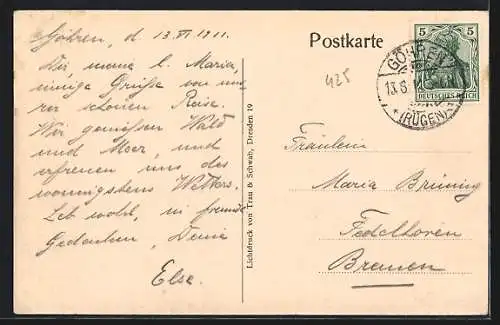 Göhren, d. 13.VI.1911.
Dir, meine l. Maria,
einige Grüße von uns-
rer schönen Reise.
Wir genießen Wald
und Meer, und
erfreuen uns des
wonnigsten Wetters.
Leb wohl, in
Gedanken, Deine
Else.
Lichtdruck von Trau & Schwab, Dresden 19
Postkarte
425
5 5
DEUTSCHES REICH
GÖHREN
13.6.
* (RÜGEN) *
Fräulein
Maria Brüning
Fedelhoren
Bremen